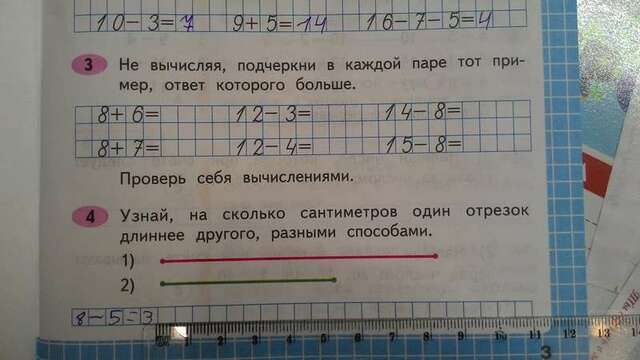 10-3=7 9+5=14 16-7-5=4
3 Не вычисляя, подчеркни в каждой паре тот при-
мер, ответ которого больше.
8+6= 12-3= 14-8=
8+7= 12-4= 15-8=
Проверь себя вычислениями.
4 Узнай, на сколько сантиметров один отрезок
длиннее другого, разными способами.
1)
2)
8-5=3
1 2 3 4 5 6 7 8 9 10 11 12 13
3